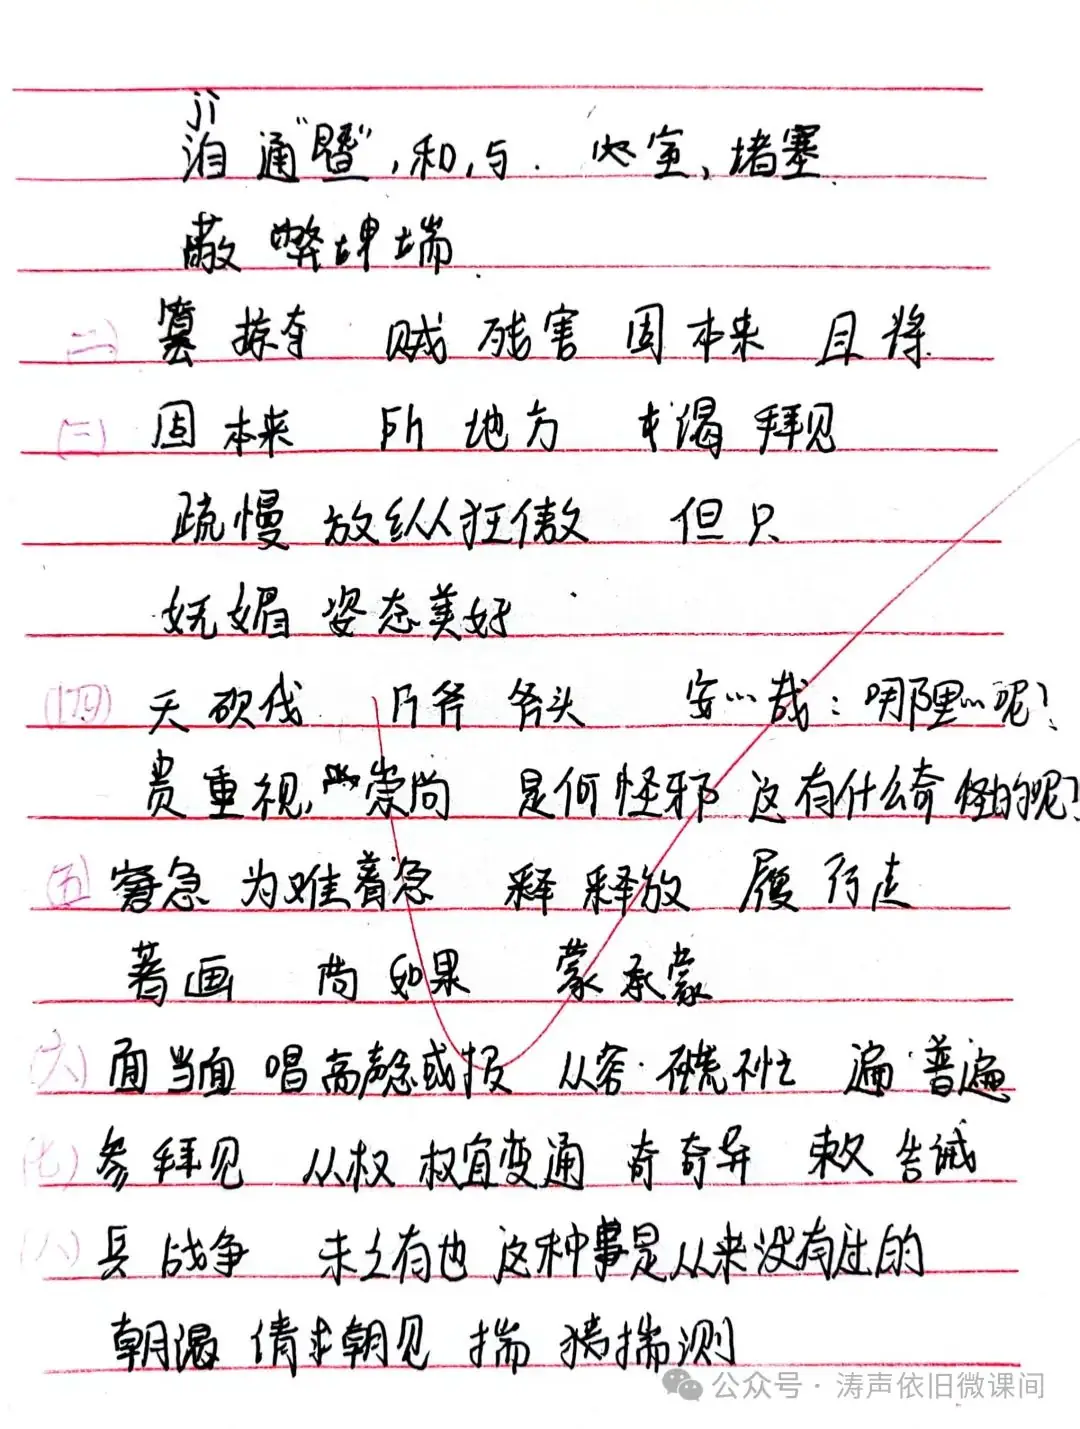 jì
洎 通"暨",和,与. 必窒、堵塞.
蔽 弊坤端.
(二) 篡 掠夺 贼 残害 固 本来 且 将
(三) 固 本来 所 地方 求谒 拜见
疏慢 放纵狂傲 但 只
妩媚 姿态美好
(四) 夭 砍伐 斤斧 斧头 安…哉:哪里…呢?
贵 重视,崇尚 是何怪邪 这有什么奇怪的呢?
(五) 窘急 为难着急 释 释放 履 行走
著画 尚 如果 蒙 承蒙
(六) 面 当面 唱 高声 从容·不忙 遍·普遍
(七) 参 拜见 从权 权宜变通 奇 奇异 敕 告诫
(八) 兵 战争 未之有也 这种事是从来没有过的
朝谒 请求朝见 揣 猜揣测
公众号·涛声依旧微课间